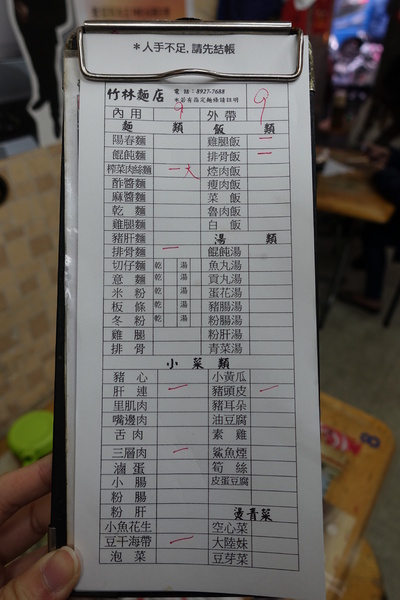 ＊人手不足，請先結帳
竹林麵店 電話：8927-7688
＊若有指定麵條請註明
內用 9 外帶 9
麵 類 飯 類
陽春麵 雞腿飯 一
餛飩麵 排骨飯 一
榨菜肉絲麵 一大 焢肉飯
酢醬麵 瘦肉飯
麻醬麵 菜飯
乾麵 魯肉飯
雞腿麵 白飯
豬肝麵 湯 類
排骨麵 一 餛飩湯
切仔麵 乾 湯 魚丸湯
意麵 乾 湯 貢丸湯
米粉 乾 湯 蛋花湯
板條 乾 湯 豬腸湯
冬粉 乾 湯 粉腸湯
雞腿 粉肝湯
排骨 青菜湯
小菜類
豬心 小黃瓜
肝連 一 豬頭皮 一
里肌肉 豬耳朵
嘴邊肉 油豆腐
舌肉 素雞
三層肉 一 鯊魚煙
滷蛋 筍絲
小腸 皮蛋豆腐
粉腸
粉肝 燙青菜
小魚花生 空心菜
豆干海帶 一 大陸妹
泡菜 豆芽菜